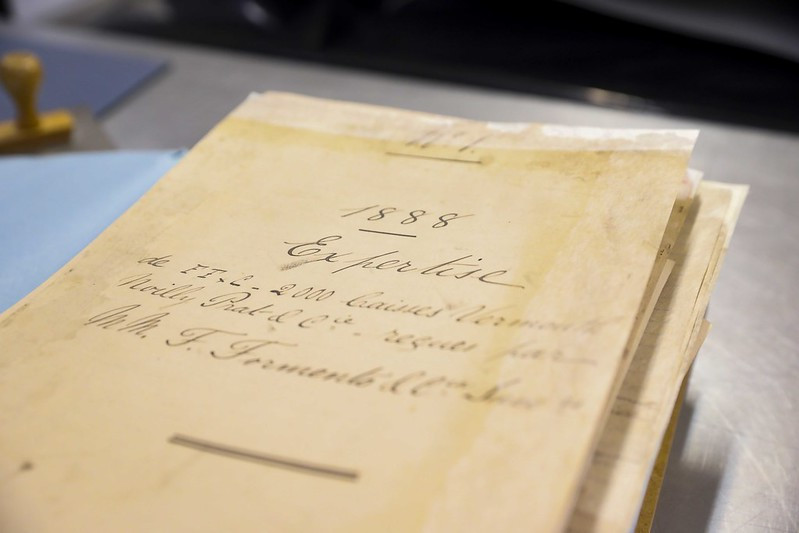 N° 1.
1888
Expertise
de FT.C. 2000 Caisses Vermouth
Noilly Prat & Cie reçues par
MM. F. Formento & Co